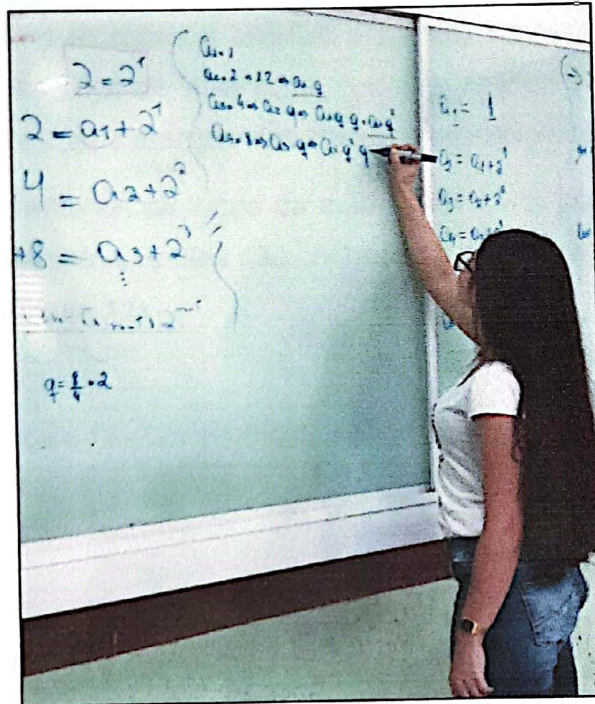 2 = 2¹
2 = a₁ + 2¹
4 = a₂ + 2²
+8 = a₃ + 2³
⋮
q = 8/4 = 2
a₁ = 1
a₂ = 2 = 1·2 = a₁ q
a₃ = 4 = a₂ q = a₁ q q = a₁ q²
a₄ = 8 = a₃ q = a₁ q² q
a₁ = 1
a₂ = a₁ + 2¹
a₃ = a₂ + 2²
a₄ = a₃ + 2³